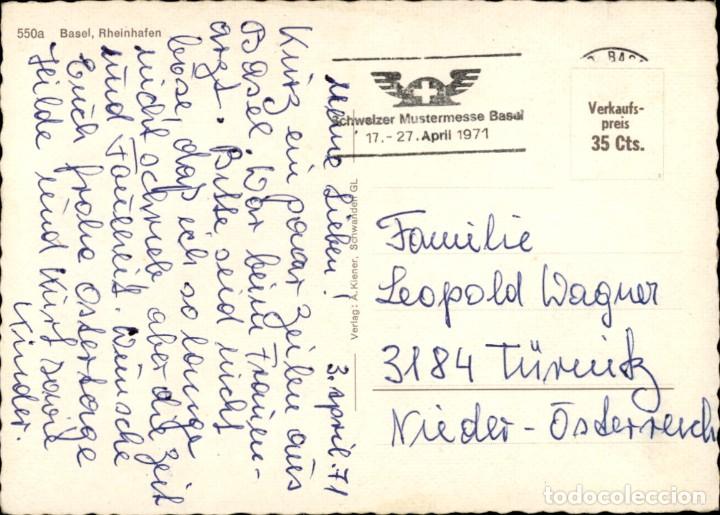 550a Basel, Rheinhafen
3. April 71
Meine Lieben!
Kurz ein paar Zeilen aus
Basel. War beim Frauen-
arzt. Bitte seid nicht
böse, daß ich so lange
nicht schrieb, aber die Zeit
und Faulheit. Wünsche
Euch frohe Ostertage
Hilde und Kurt sowie
Kinder.
Verlag: A. Kiener, Schwanden GL
Schweizer Mustermesse Basel
17.-27. April 1971
Verkaufs-
preis
35 Cts.
Familie
Leopold Wagner
3184 Türnitz
Nieder-Österreich
todocoleccion